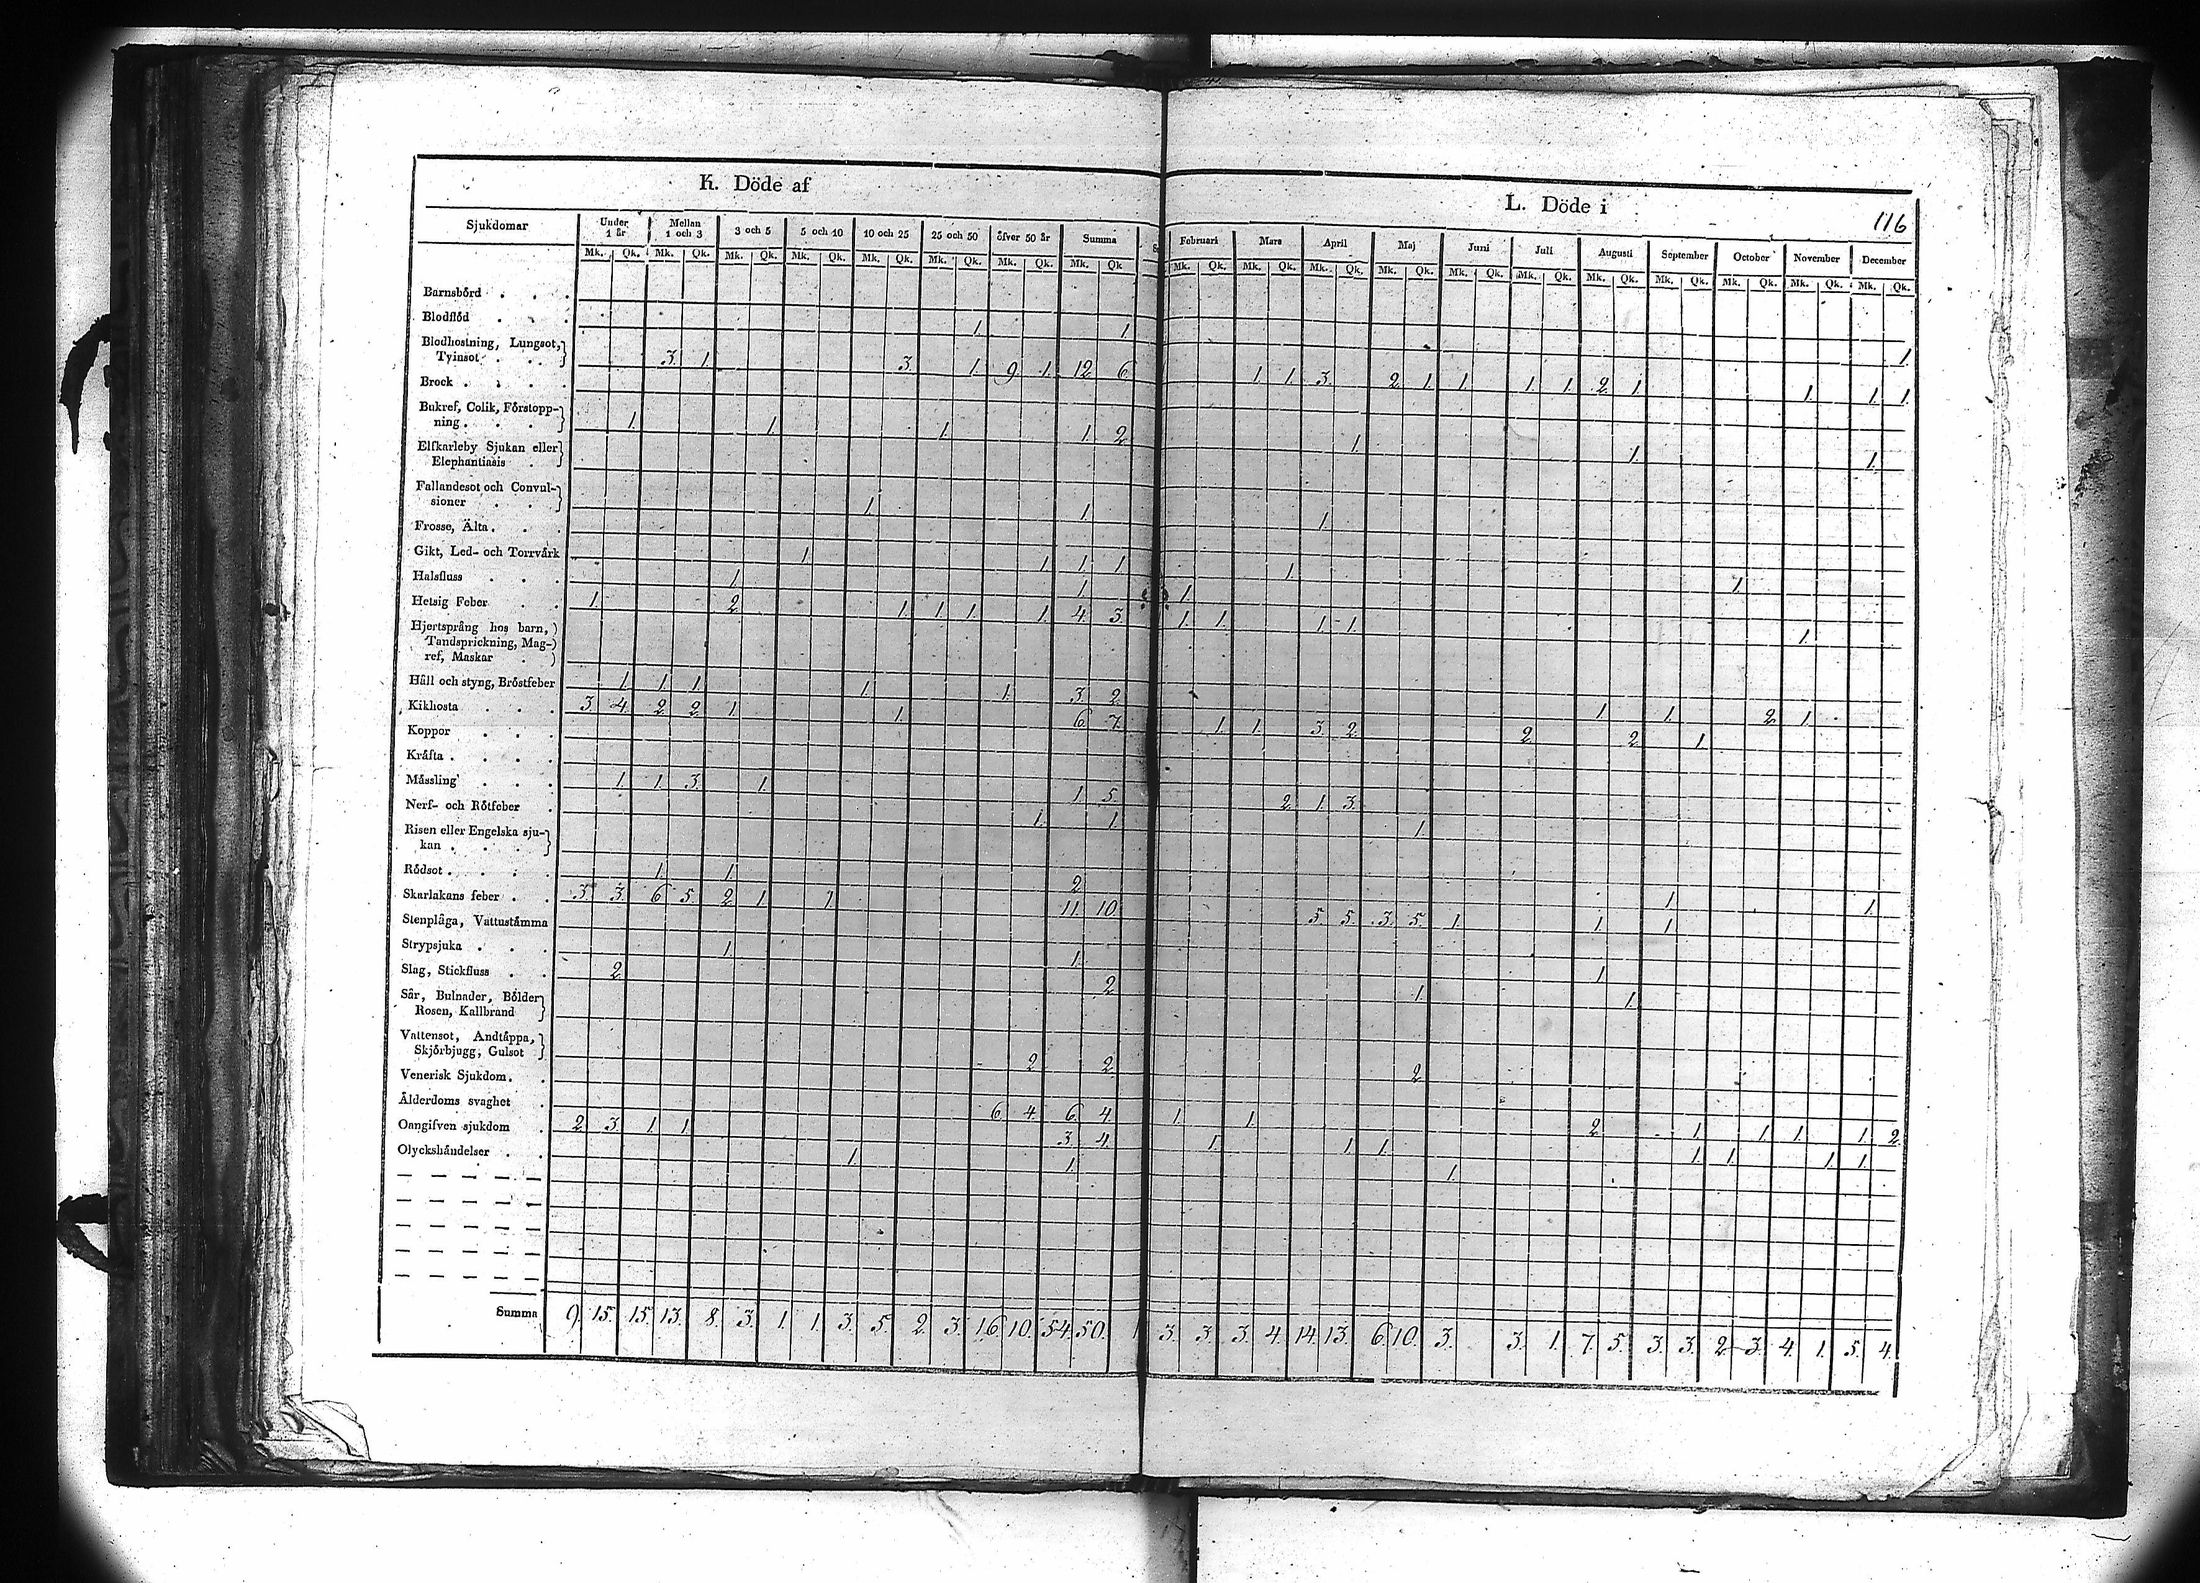 K. Döde af
L. Döde i
116
Sjukdomar
Under 1 år
Mellan 1 och 3
3 och 5
5 och 10
10 och 25
25 och 50
öfver 50 år
Summa
Februari
Mars
April
Maj
Juni
Juli
Augusti
September
October
November
December
Mk. Qk. Mk. Qk. Mk. Qk. Mk. Qk. Mk. Qk. Mk. Qk. Mk. Qk. Mk. Qk
Mk. Qk. Mk. Qk. Mk. Qk. Mk. Qk. Mk. Qk. Mk. Qk. Mk. Qk. Mk. Qk. Mk. Qk. Mk. Qk. Mk. Qk.
Barnsbörd . . .
Blodflöd . . . 1. 1. 1.
Blodhostning, Lungsot,
Tvinsot . . . 3. 1. 3. 1. 9. 1. 12. 6. 1. 1. 3. 2. 1. 1. 1. 1. 2. 1. 1. 1. 1.
Brock . . . .
Bukref, Colik, Förstopp-
ning . . . 1. 1. 1. 1. 2. 1. 1. 1.
Elfkarleby Sjukan eller
Elephantiasis .
Fallandesot och Convul-
sioner . . . 1. 1. 1.
Frosse, Älta . . .
Gikt, Led- och Torrvärk 1. 1. 1. 1. 1. 1.
Halsfluss . . . 1. 1. 1.
Hetsig Feber . . 1. 2. 1. 1. 1. 1. 4. 3. 1. 1. 1. 1. 1.
Hjertsprång hos barn,
Tandsprickning, Mag-
ref, Maskar .
Håll och styng, Bröstfeber 1. 1. 1. 1. 1. 3. 2. 1. 1. 2. 1.
Kikhosta . . . 3. 4. 2. 2. 1. 1. 6. 7. 1. 1. 3. 2. 2. 2. 1.
Koppor . . .
Kräfta . . . .
Mässling . . . 1. 1. 3. 1. 1. 5. 2. 1. 3.
Nerf- och Rötfeber . 1. 1. 1.
Risen eller Engelska sju-
kan . . . .
Rödsot . . . . 1. 1. 2. 1. 1.
Skarlakans feber . . 3. 3. 6. 5. 2. 1. 1 11. 10. 5. 5. 3. 5. 1. 1. 1.
Stenplåga, Vattustämma
Strypsjuka . . . 1. 1. 1.
Slag, Stickfluss . . 2. 2. 1. 1.
Sår, Bulnader, Bölder
Rosen, Kallbrand
Vattensot, Andtäppa,
Skjörbjugg, Gulsot 2. 2. 2.
Venerisk Sjukdom . .
Ålderdoms svaghet . 6. 4. 6. 4. 1. 1. 2. 1. 1. 1. 1. 2.
Oangifven sjukdom . 2. 3. 1. 1. 3. 4. 1. 1. 1. 1. 1. 1. 1.
Olyckshändelser . . 1. 1. 1.
Summa 9. 15. 15. 13. 8. 3. 1. 1. 3. 5. 2. 3. 16. 10. 54. 50. 3. 3. 3. 4. 14. 13. 6. 10. 3. 3. 1. 7. 5. 3. 3. 2. 3. 4. 1. 5. 4.